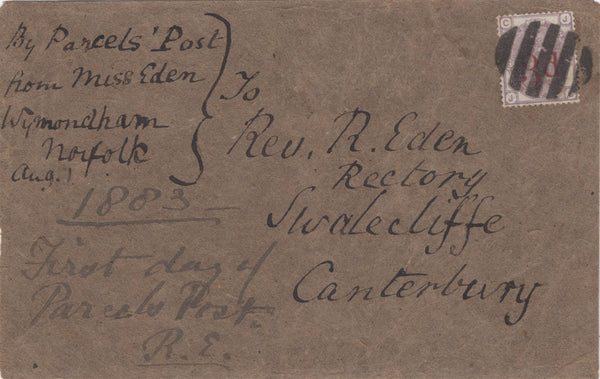 By Parcels' Post
from Miss Eden
Wymondham
Norfolk
Aug. 1
1883
First day of
Parcels Post.
R.E.
To
Rev. R. Eden
Rectory
Swalecliffe
Canterbury
3d